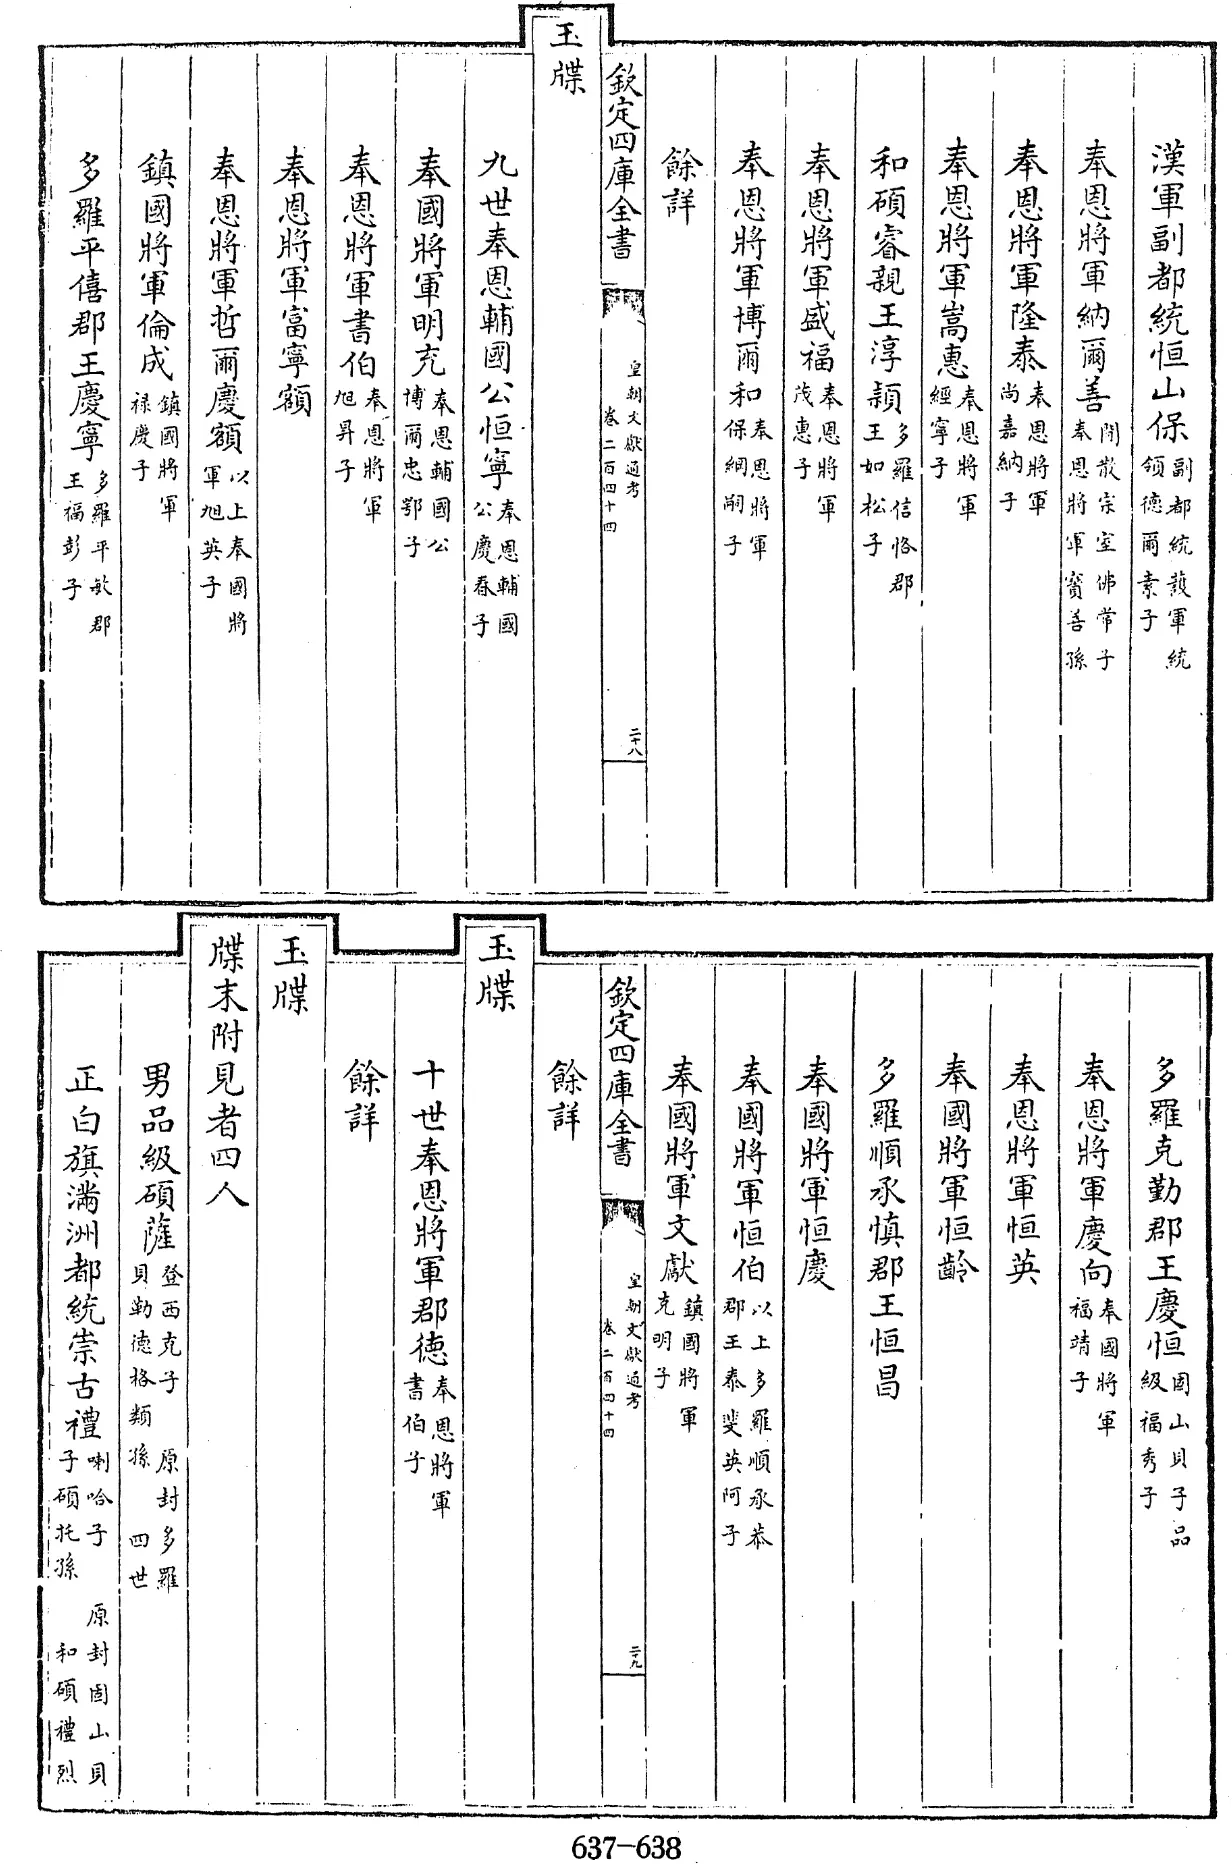 漢軍副都統恒山保副都統護軍統領德爾素子
奉恩將軍納爾善閒散宗室佛常子奉恩將軍賓善孫
奉恩將軍隆泰奉恩將軍尚嘉納子
奉恩將軍嵩惠奉恩將軍經寧子
和碩睿親王淳穎多羅信恪郡王如松子
奉恩將軍盛福奉恩將軍茂惠子
奉恩將軍博爾和奉恩將軍保綱嗣子
餘詳
欽定四庫全書 皇朝文獻通考卷二百四十四 二十八
玉牒
九世奉恩輔國公恒寧奉恩輔國公慶春子
奉國將軍明充奉恩輔國公博爾忠鄂子
奉恩將軍書伯奉恩將軍旭昇子
奉恩將軍富寧額
奉恩將軍哲爾慶額以上奉國將軍旭英子
鎮國將軍倫成鎮國將軍祿慶子
多羅平僖郡王慶寧多羅平敏郡王福彭子
多羅克勤郡王慶恒固山貝子品級福秀子
奉恩將軍慶向奉國將軍福靖子
奉恩將軍恒英
奉國將軍恒齡
多羅順承慎郡王恒昌
奉國將軍恒慶
奉國將軍恒伯以上多羅順承恭郡王泰斐英阿子
奉國將軍文獻鎮國將軍克明子
餘詳
欽定四庫全書 皇朝文獻通考卷二百四十四 二十九
玉牒
十世奉恩將軍郡德奉恩將軍書伯子
餘詳
玉牒
牒末附見者四人
男品級碩薩登西克子 原封多羅貝勒德格類孫 四世
正白旗滿洲都統崇古禮喇哈子 原封固山貝子碩托孫 和碩禮烈
637-638